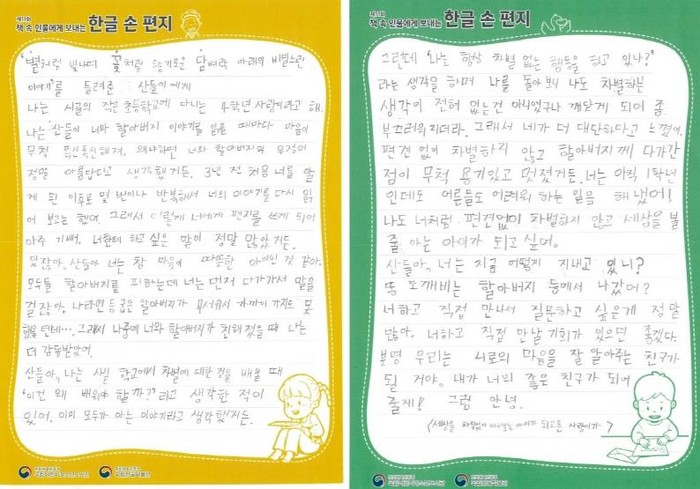 제11회
책 속 인물에게 보내는 한글 손 편지
'별처럼 빛나며 꽃처럼 향기로운 담벼락 아래의 비별노란
이야기'를 들려준 산들이에게
나는 시골의 작은 초등학교에 다니는 4학년 사랑이라고 해.
나는 산들이 너와 할아버지 이야기를 읽을 때마다 마음이
무척 푹신푹신해져. 왜냐하면 너와 할아버지의 우정이
정말 아름답다고 생각했거든. 3년 전 처음 너를 알
게 된 이후로 몇 번이나 반복해서 너의 이야기를 다시 읽
어 보고는 했어. 그래서 이렇게 너에게 편지를 쓰게 되어
아주 기뻐. 너한테 하고 싶은 말이 정말 많았거든.
있잖아, 산들아 너는 참 마음이 따뜻한 아이인 것 같아.
모두들 할아버지를 피하는데 너는 먼저 다가가서 말을
걸잖아. 나라면 할아버지가 무서워서 가까이 가지도 못
했을 텐데…. 그래서 나중에 너와 할아버지가 친해졌을 때 나는
더 감동받았어.
산들아, 나는 사실 학교에서 차별에 대한 것을 배울 때
'이건 왜 배워야 할까?'라고 생각한 적이
있어. 이미 모두가 아는 이야기라고 생각했거든.
국립어린이청소년도서관
국립한글박물관
제11회
책 속 인물에게 보내는 한글 손 편지
그런데 '나는 항상 차별 없는 행동을 하고 있나?'
라는 생각을 하며 나를 돌아봤니 나도 차별하는
생각이 전혀 없는건 아니었구나 깨닫게 되어 좀
부끄러워지더라. 그래서 네가 더 대단하다고 느꼈어.
편견 없이 차별하지 않고 할아버지께 다가간
점이 무척 용기있고 멋졌거든. 너는 아직 1학년
인데도 어른들도 어려워 하는 일을 해냈어!
나도 너처럼 편견없이 차별하지 않고 세상을 볼
줄 아는 아이가 되고 싶어.
산들아, 너는 지금 어떻게 지내고 있니?
또 도깨비는 할아버지 등에서 나갔어?
너하고 직접 만나서 질문하고 싶은게 정말
많아. 너하고 직접 만날 기회가 있으면 좋겠다.
분명 우리는 서로의 마음을 잘 알아주는 친구가
될 거야. 내가 너의 좋은 친구가 되어
줄게! 그럼 안녕.
국립어린이청소년도서관
국립한글박물관